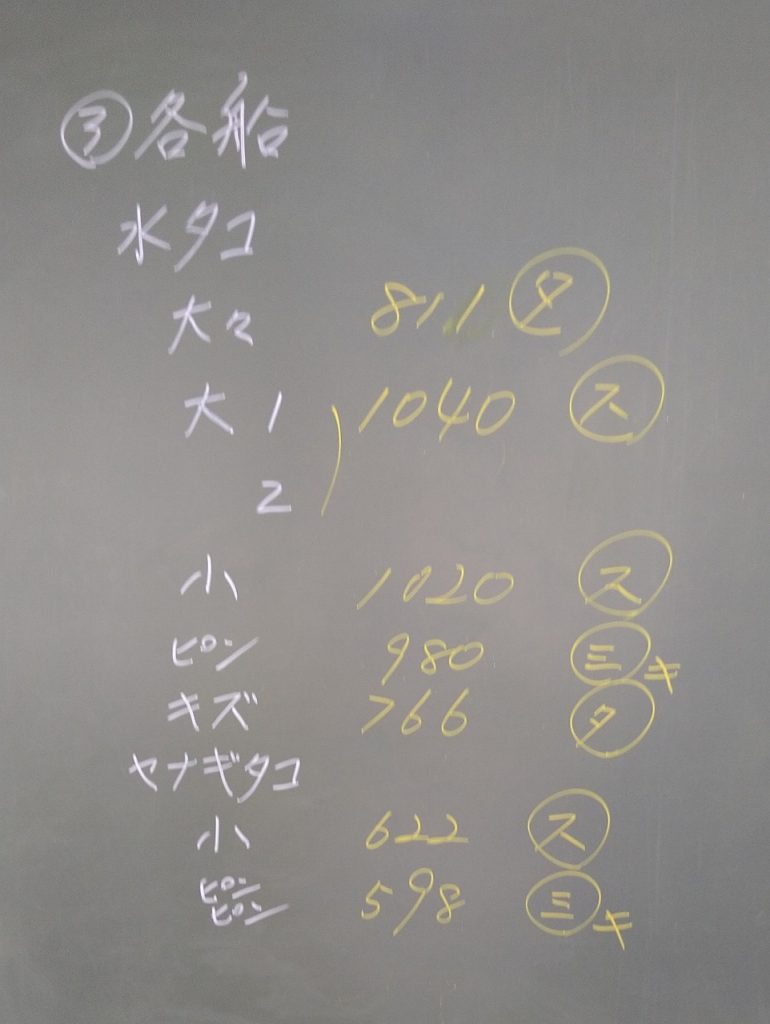 ③各船
水タコ
大々 811 タ
大 1 1040 ス
2
小 1020 ス
ピン 980 三キ
キズ 766 タ
ヤナギタコ
小 622 ス
ピンピン 598 三キ